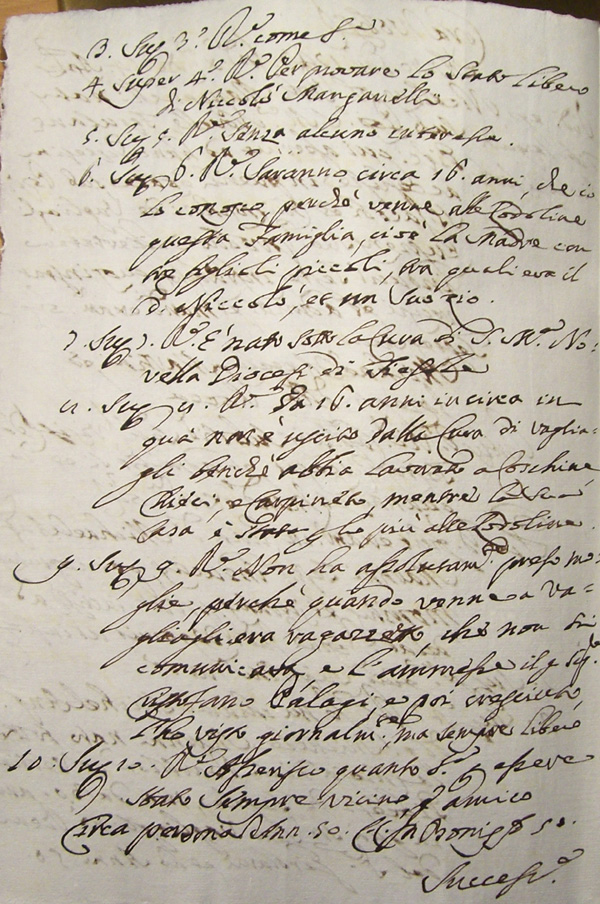 3. Sup 3.° R.° come s.ª
4. Super 4.° R.° Per provare lo stato libero
di Niccolò Manganelli
5. Sup 5. R.° Senza alcuno interesse.
6. Sup 6. R.° Saranno circa 16. anni, che io
lo conosco, perchè venne alle Lodoline
questa Famiglia, cioè la Madre con
tre figlioli piccoli, tra quali era il
d.° Niccolò, et un suo zio.
7. Sup 7. R.° È nato sotto la Cura di S. M.ª No-
vella Diocesi di Fiesole
Sup R.° Da 16. anni in circa in
quà non è uscito dalla Cura di Vaglia-
gli benchè abbia lavorato a Coschine,
e Carpineto, mentre la sua
Casa è stata p lo più alle Lodoline.
9. Sup 9. R.° Non ha assolutam.te preso mo-
glie perchè quando venne a Va-
gliagli era ragazzetto, che non si
comunicava, e l'ammesse il
Palagi, e poi cresciuto
l'ho visto giornalm.te, ma sempre libero
10. Sup 10. R.° Asserisco quanto s.ª p essere
stato sempre vicino, e amico
Circa
Success.e